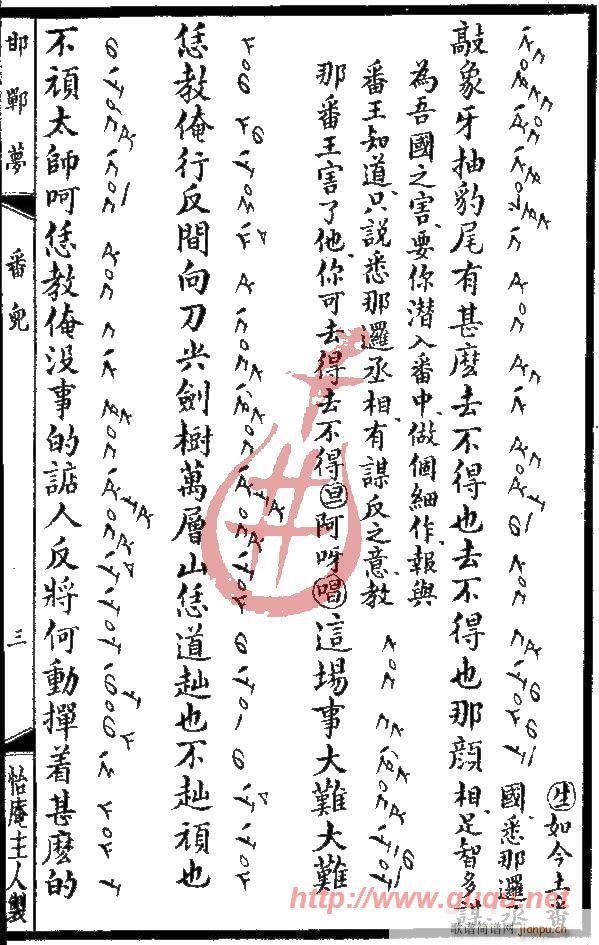 敲象牙抽豹尾有甚麽去不得也去不得也那顔
生 如今土番
國悉那邏丞
相足智多謀
為吾國之害要你潛入番中做個細作報與
番王知道只說悉那邏丞相有謀反之意教
那番王害了他你可去得去不得 旦 阿呀 唱 這場事大難大難
恁教俺行反間向刀尖劍樹萬層山恁道赸也不赸頑也
不頑太師呵恁教俺没事的人反將何動撣着甚麽的
邯鄲夢 番兒 三 怡庵主人製
http://www.guqu.net
歌谱简谱网
jianpu.cn